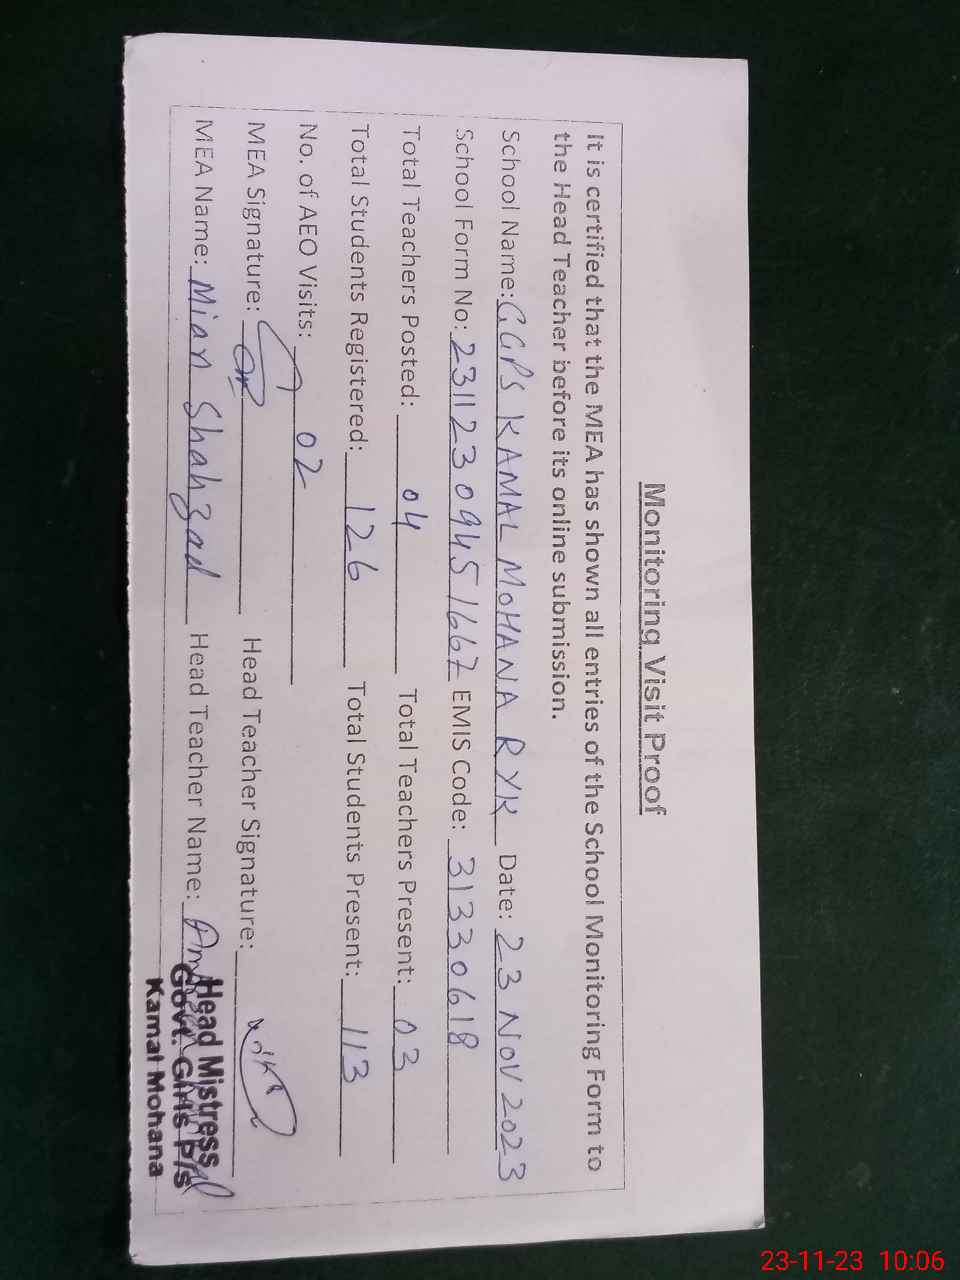 Monitoring Visit Proof
It is certified that the MEA has shown all entries of the School Monitoring Form to
the Head Teacher before its online submission.
School Name: GGPS KAMAL MOHANA RYK Date: 23 NOV 2023
School Form No: 231123094516 67 EMIS Code: 31330618
Total Teachers Posted: 04 Total Teachers Present: 03
Total Students Registered: 126 Total Students Present: 113
No. of AEO Visits: 02
MEA Signature: Head Teacher Signature:
MEA Name: Mian Shahzad Head Teacher Name:
Head Mistress
Govt. Girls P/S
Kamal Mohana
23-11-23 10:06